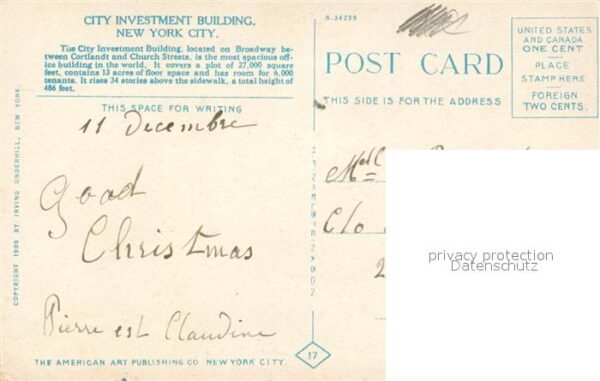 CITY INVESTMENT BUILDING,
NEW YORK CITY.
The City Investment Building, located on Broadway be-
tween Cortlandt and Church Streets, is the most spacious of-
fice building in the world. It covers a plot of 27,000 square
feet, contains 13 acres of floor space and has room for 6,000
tenants. It rises 34 stories above the sidewalk, a total height of
486 feet.
THIS SPACE FOR WRITING
11 Decembre
Good
Christmas
Pierre est Claudine
THE AMERICAN ART PUBLISHING CO NEW YORK CITY.
COPYRIGHT 1909 BY IRVING UNDERHILL, NEW YORK.
R-34299
POST CARD
THIS SIDE IS FOR THE ADDRESS
UNITED STATES
AND CANADA
ONE CENT
PLACE
STAMP HERE
FOREIGN
TWO CENTS.
Mdll
C/o
2
17
privacy protection
Datenschutz